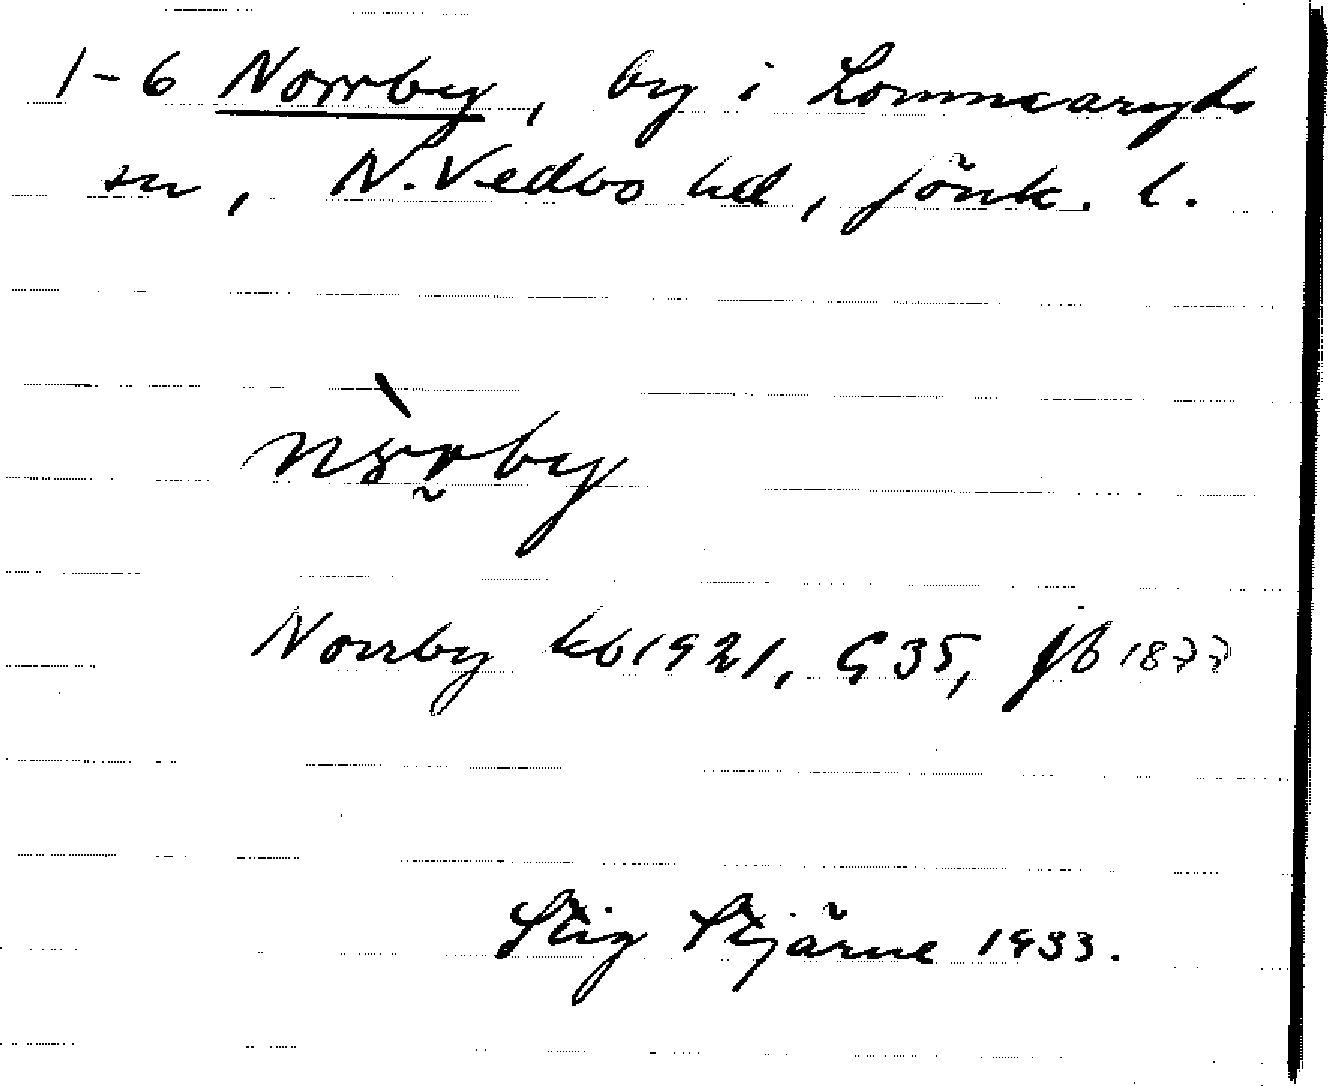 1-6 Norrby, by i Lommaryds
sn, N. Vedbo hd, Jönk. l.
Norrby kb 1921, G 35, jb 1877
Stig Stjärne 1933.